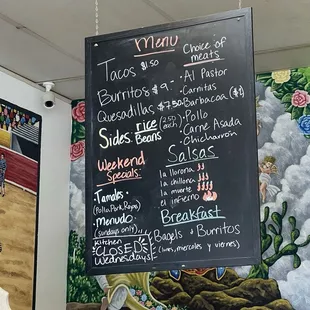 Menu
Tacos $1.50
Burritos $9.-
Quesadillas $7.50
Sides: rice Beans (2.50 each)
Weekend Specials:
· Tamales ·
(Pollo, Pork, Rajas)
· Menudo
(Sundays only)
Kitchen
CLOSED
Wednesdays
Choice of meats
· Al Pastor
· Carnitas
· Barbacoa (+$1)
· Pollo
· Carne Asada
· Chicharron
Salsas
la llorona
la chillona
la muerte
el infierno
Breakfast
Bagels · Burritos
(lunes, miercoles y viernes)